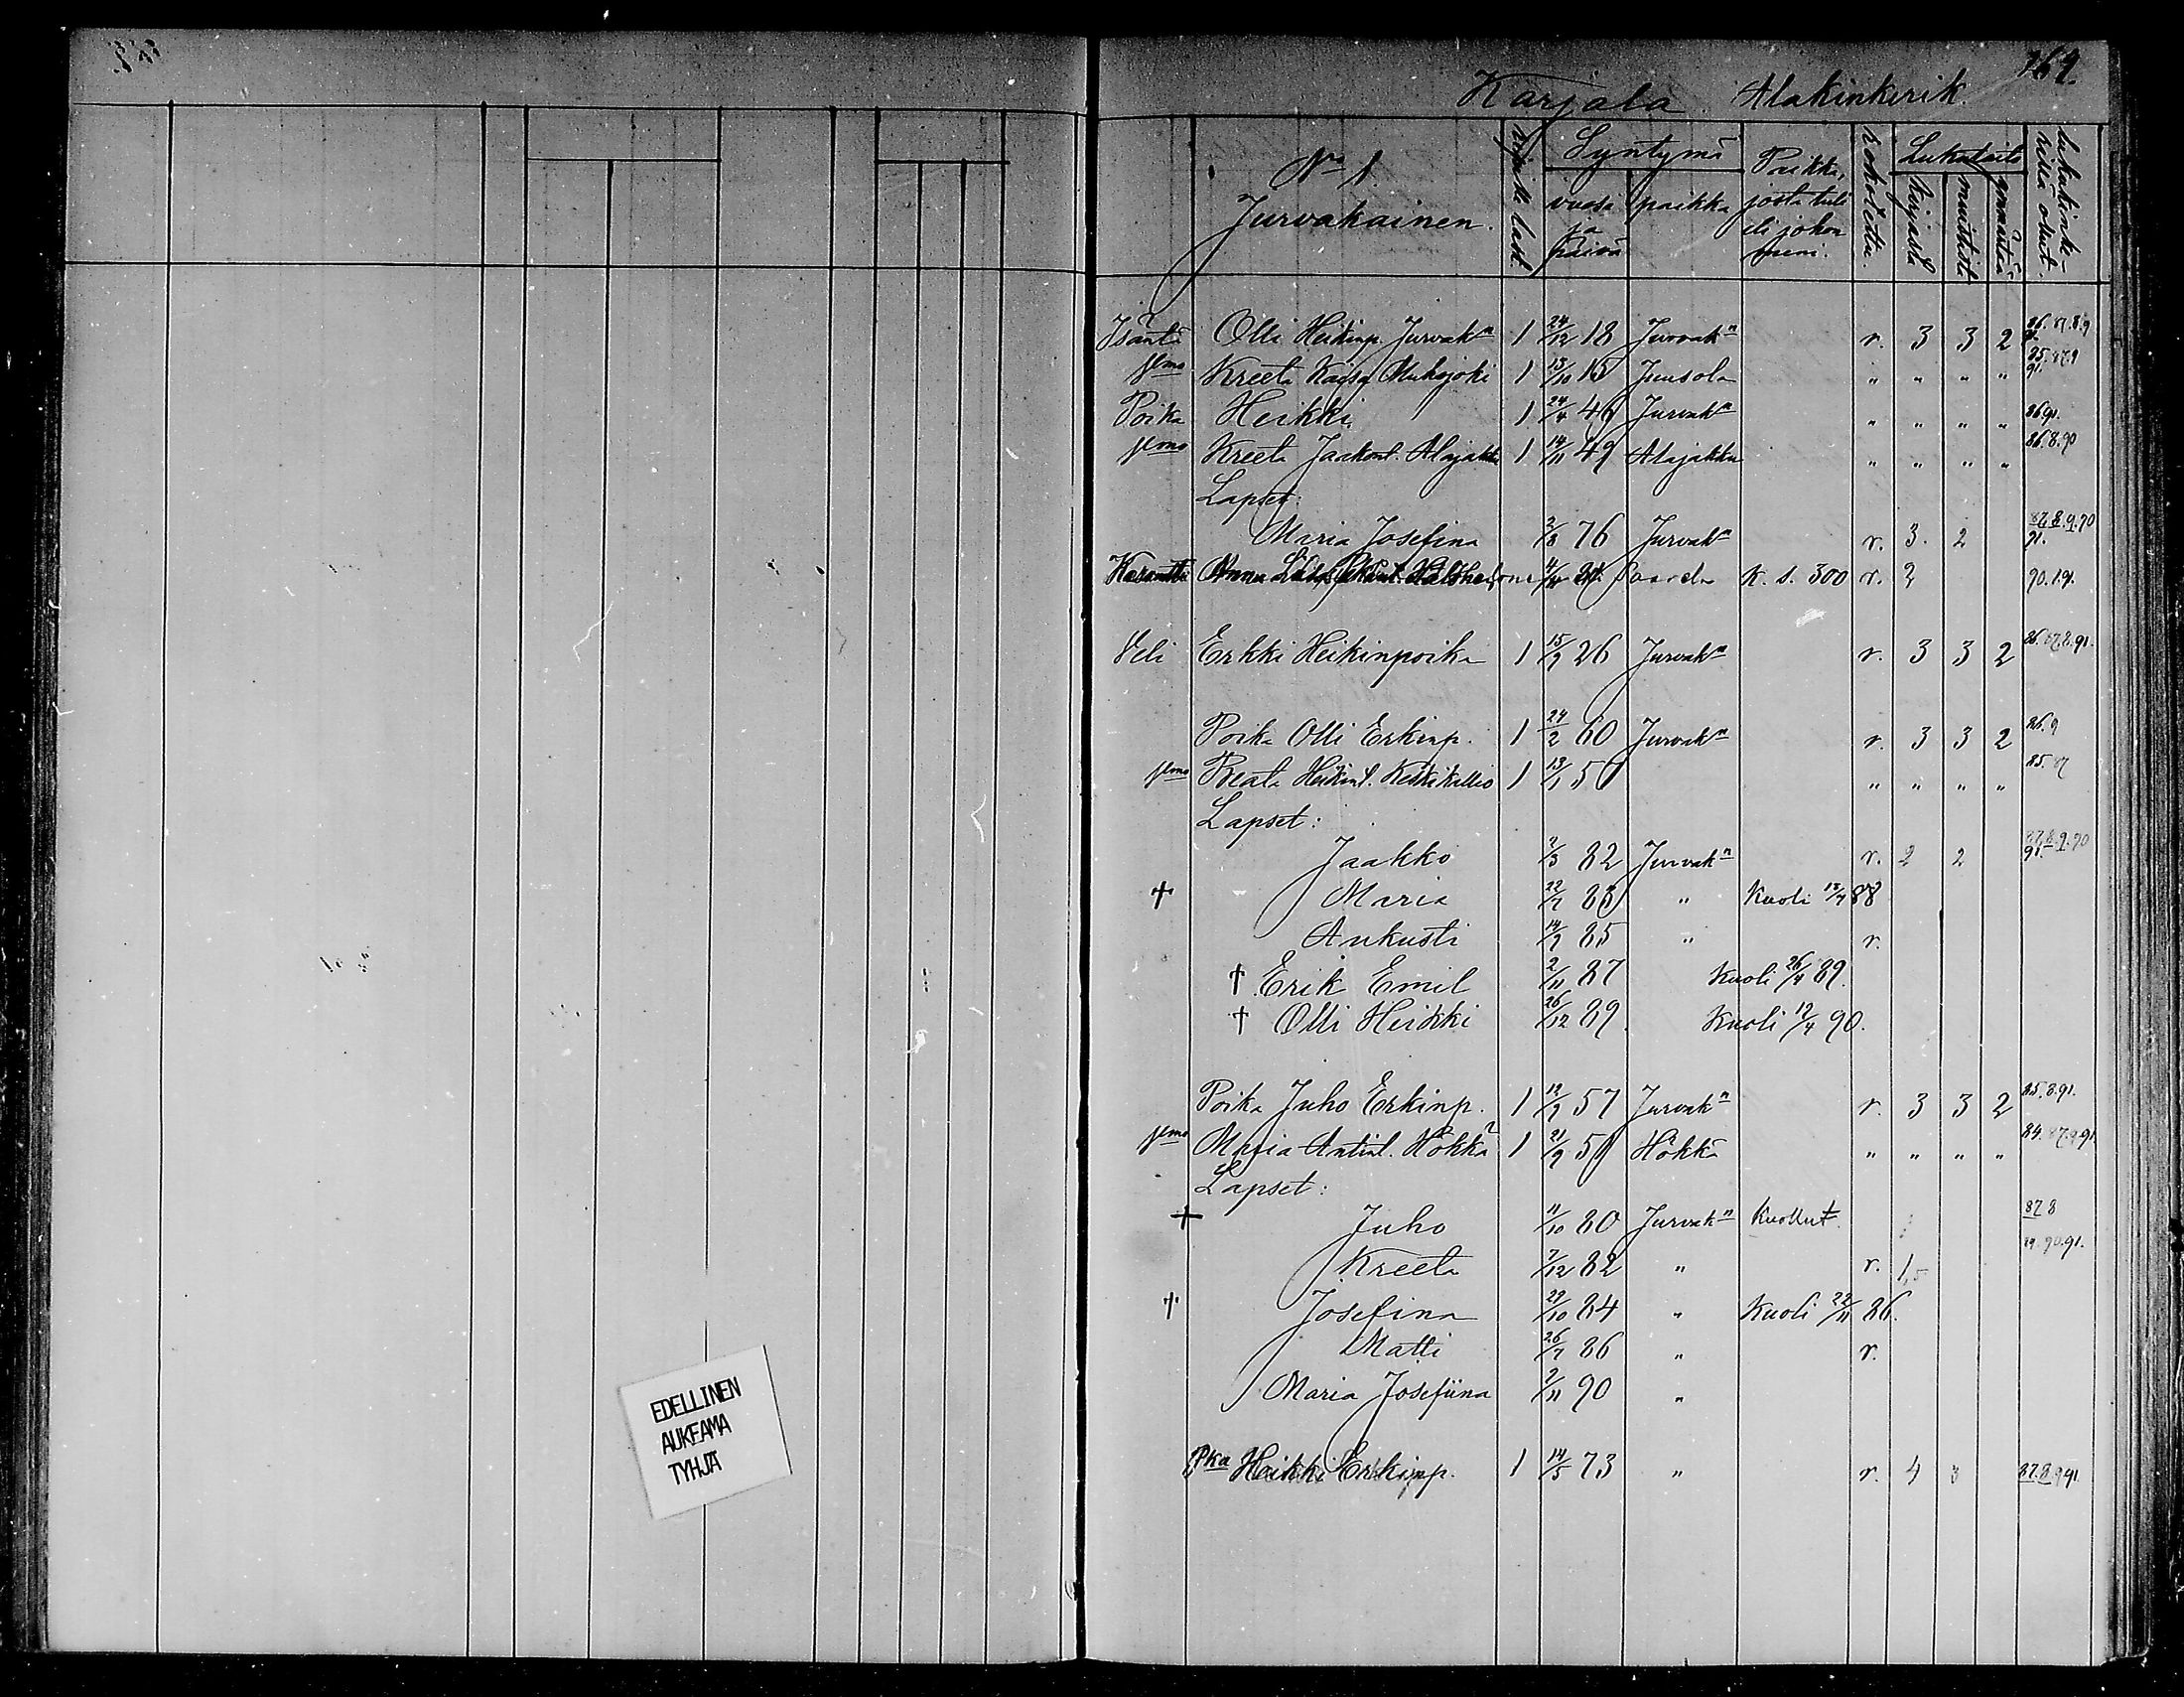 169.
Karjala Alakinkerik.
No 1.
Jurvakainen.
Syntymä
vuosi ja päivä
paikka
Paikka, josta tuli eli johon meni.
rokotettu.
Lukutaito
kirjasta
lukukinkerillä ollut.
Isäntä Olli Heikinp. Jurvakn 1 24/12 18 Jurvakn r. 3 3 2 86.87.8.9 91.
Kreeta Kaisa 1 13/10 15 Juusola " " " " 91.
Poika Heikki 1 24/4 46 Jurvakn " " " " 86.91.
Kreeta Jaakont. Alajakku 1 14/11 49 Alajakku " " " " 86.8.90
Lapset:
Maria Josefina 2/8 76 Jurvakn r. 3. 2 87.8.9.90 91.
Anna k. s. 300 r. 2 90.1.91.
Veli Erkki Heikinpoika 1 15/9 26 Jurvakn r. 3 3 2 86.87.8.91.
Poika Olli Erkinp. 1 24/2 60 Jurvakn r. 3 3 2 86.9
Beata Heikint. Keskikallio 1 13/1 56 " " " " 85.87
Lapset:
Jaakko 2/3 82 Jurvakn r. 2 2 87.8.9.90 91.
† Maria 22/7 83 " Kuoli 18/4 88
Aukusti 14/9 85 " r.
† Erik Emil 2/11 87 Kuoli 26/4 89.
† Olli Heikki 26/12 89. Kuoli 12/4 90.
Poika Juho Erkinp. 1 12/9 57 Jurvakn r. 3 3 2 85.8.91.
Maria Antint. Hökkä 1 21/9 59 Hökkä " " " " 84.87.9.91
Lapset:
† Juho 11/10 80 Jurvakn Kuollut. 87.8
Kreeta 7/12 82 " r. 1,5 89.90.91.
† Josefina 29/10 84 " Kuoli 22/11 86.
Matti 26/7 86 " r.
Maria Josefiina 2/11 90 "
Pka Heikki Erkinp. 1 14/5 73 " r. 4 3 87.8.9.91.
EDELLINEN
AUKEAMA
TYHJÄ